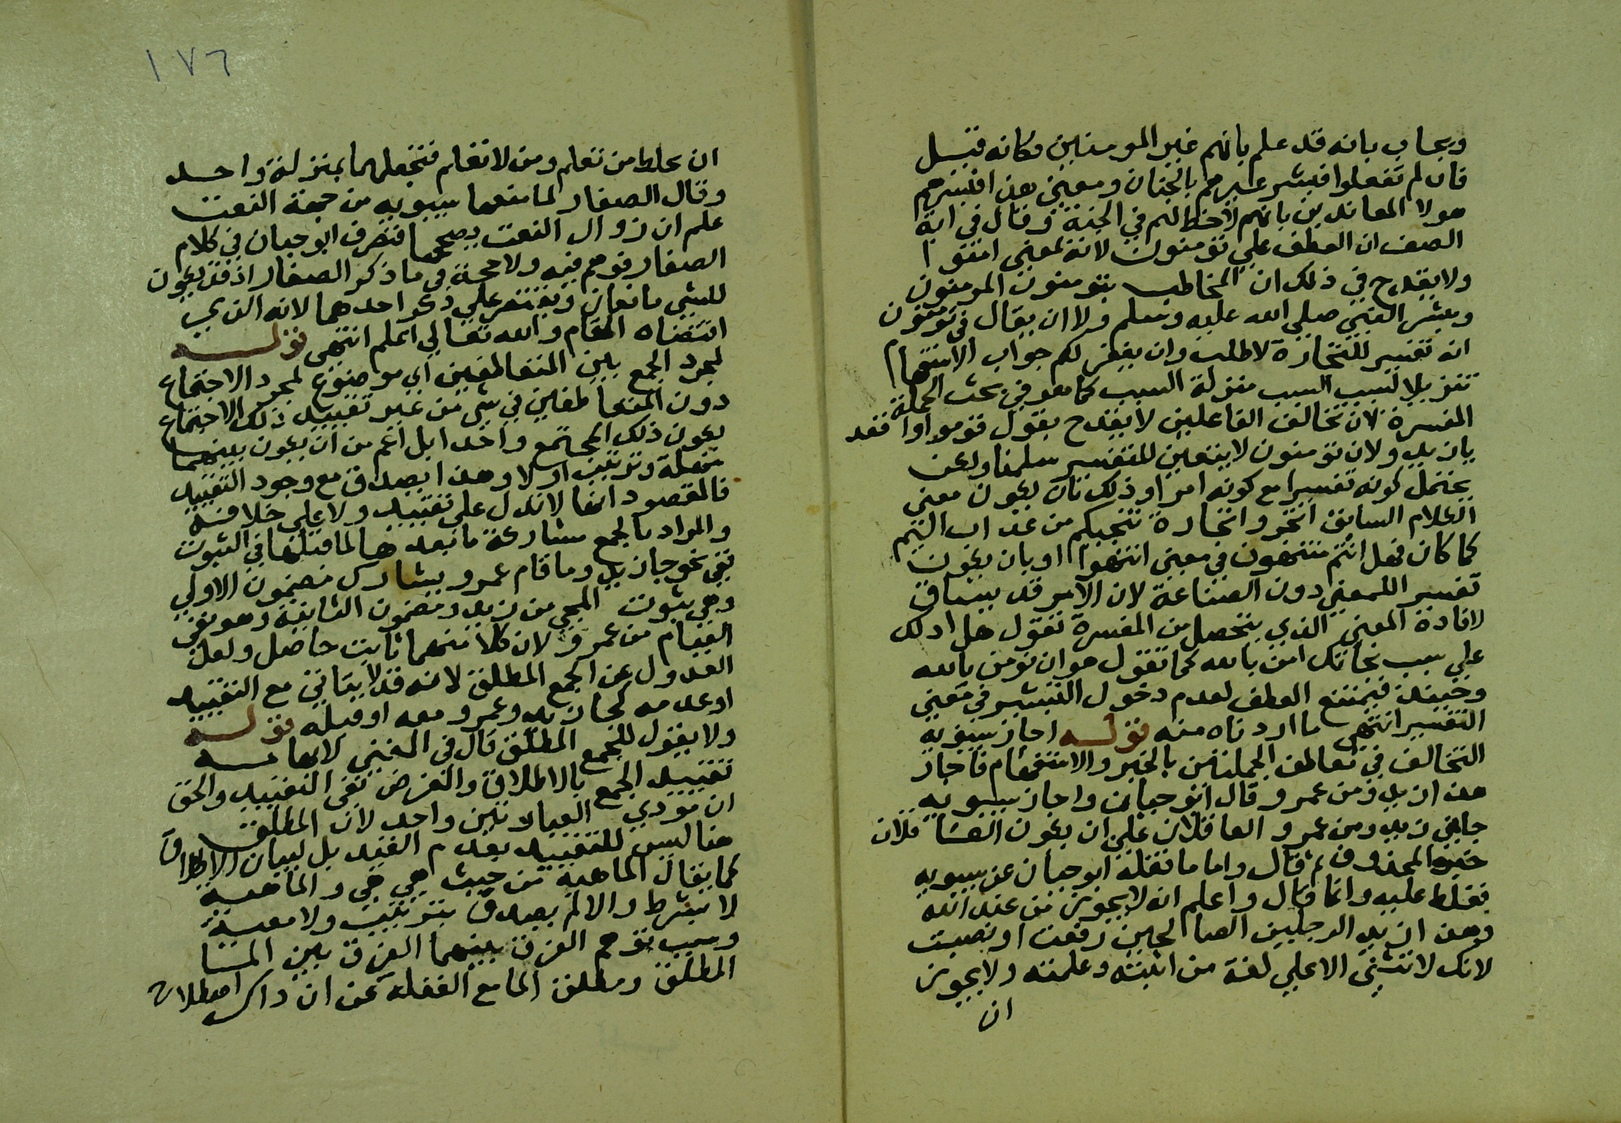 ويجاب بانه قد علم بانهم غير المومنين فكانه قيل
فان لم تفعلوا فبشر غيرهم بالجنان ومعنى هذا فبشر هم
هولا المعاندين بانهم لاحظ لهم في الجنة وقال في اية
الصف ان العطف علي تومنون لانه بمعنى امنوا
ولا يقدح في ذلك ان المخاطب بتومنون المومنون
وببشر النبي صلي الله عليه وسلم ولا ان يقال في تومنون
انه تفسير للتجارة لا طلب وان يغفر لكم جواب الاستفهام
تنزيلا لسبب السبب منزلة السبب كما مر في بحث الجملة
المفسرة لان تخالف الفاعلين لا يقدح بقول قوموا واقعد
يا زيد ولان تومنون لا يتعين للتفسير سلمنا ولكن
يحتمل كونه تفسيرا مع كونه امرا وذلك بان يكون معنى
الكلام السابق اتجروا تجارة تنجيكم من عذاب اليم
كما كان فهل انتم منتهون في معنى انتهوا او بان يكون
تفسيرا للمعني دون الصناعة لان الامر قد يساق
لافادة المعني الذي يتحصل من المفسرة تقول هل ادلك
علي سبب نجاتك امن بالله كما تقول هو ان تومن بالله
وحينيذ فيمتنع العطف لعدم دخول التبشير في معني
التفسير انتهي ما اردناه منه قوله اجاز سيبويه
التخالف في تعاطف الجملتين بالخبر والاستفهام فاجاز
هذا زيد ومن عمرو وقال ابو حيان واجاز سيبويه
جاني زيد ومن عمرو العاقلان علي ان يكون العاقلان
خبر المحذوف ثم قال واما ما نقله ابو حيان عن سيبويه
فغلط عليه وانما قال واعلم انه لا يجوز من عبد الله
وهذا زيد الرجلين الصالحين رفعت او نصبت
لانك لا تثني الا علي لغة من اثبته وعلمته ولا يجوز
ان
١٧٦
ان تخلط من تعلم ومن لا تعلم فتجعلهما بمنزلة واحد
وقال الصفار لما منعها سيبويه من جهة النعت
علم ان زوال النعت يصححها فتصرف ابو حيان في كلام
الصفار فوهم فيه ولا حجة في ما ذكر الصفار اذ قد يكون
للشي مانعان ويقتصر علي ذكر احدهما لانه الذي
اقتضاه المقام والله تعالي اعلم انتهى قوله
لمجرد الجمع بين المتعاطفين اي موضوع لمجرد الاجتماع
دون المتعاطفين في شي من غير تقييد ذلك الاجتماع
بكون ذلك المجتمع واحدا بل اعم من ان يكون بينهما
مهلة وترتيب اولا وهذا يصدق مع وجود التقييد
فالمقصود انها لا تدل علي تقييد ولا علي خلافه
والمراد بالجمع مشاركة ما بعدها لما قبلها في الثبوت
ففي نحو جا زيد وما قام عمرو يشارك مضمون الاولي
وهي ثبوت المجي من زيد ومضمون الثانية وهو نفي
القيام من عمرو لان كلا منهما ثابت حاصل ولعل
العدول عن الجمع المطلق لانه قد لا يتاتي مع التقييد
او عدمه كجا زيد وعمرو معه او قبله قوله
ولا يقول للجمع المطلق قال في المغني لانها
تقييد الجمع بالاطلاق والغرض نفي التقييد والحق
ان مودي العبارتين واحد لان المطلق
هنا ليس للتقييد بعدم القيد بل لبيان الاطلاق
كما يقال الماهية من حيث هي هي والماهية
لا بشرط والا لم يصدق بترتيب ولا معية
وسبب توهم الفرق بينهما الفرق بين الما
المطلق ومطلق الما مع الغفلة عن ان ذاك اصطلاح